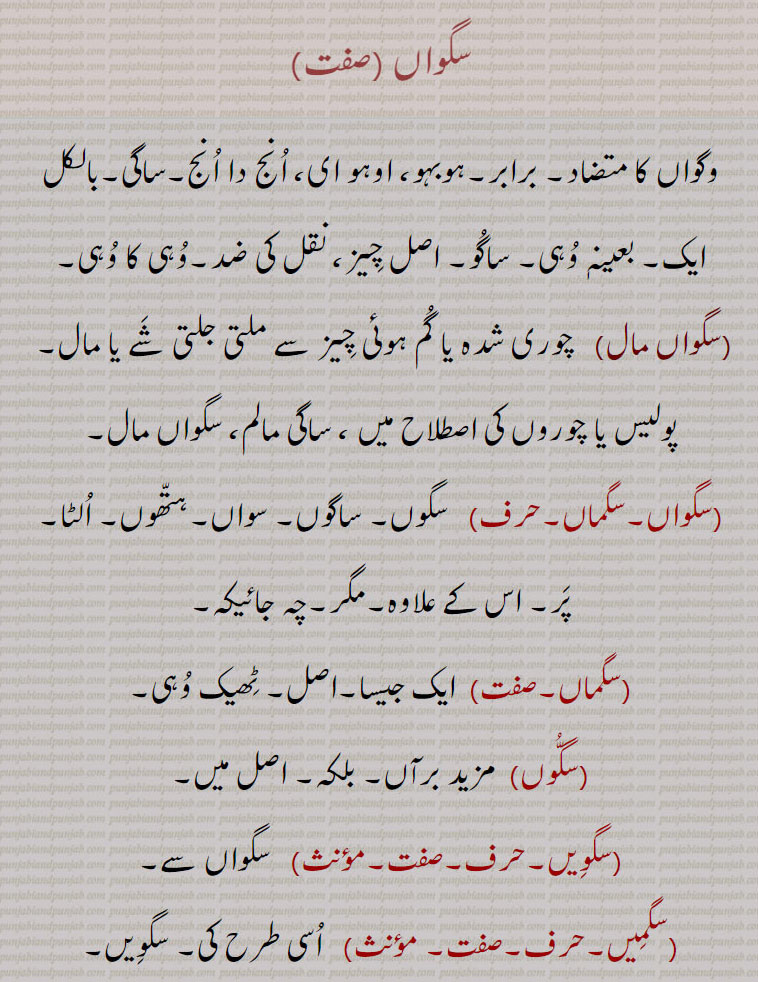 سگواں (صفت)
وگواں کا متضاد۔ برابر۔ہوبہو، اوہو ای، اُنج دا اُنج۔ساگی۔بالکل
ایک۔ بعینہٖ وُہی۔ ساگُو۔ اصل چِیز، نقل کی ضد۔وُہی کا وُہی۔
(سگواں مال) چوری شدہ یا گُم ہوئی چِیز سے ملتی جلتی شَے یا مال۔
پولیس یا چوروں کی اصطلاح میں، ساگی مالم، سگواں مال۔
(سگواں۔سگماں۔حرف) سگوں۔ ساگوں۔ سواں۔ہتھّوں۔ اُلٹا۔
پَر۔ اس کے علاوہ۔مگر۔چہ جائیکہ۔
(سگماں۔صفت) ایک جیسا۔اصل۔ ٹِھیک وُہی۔
(سگُّوں) مزید برآں۔ بلکہ۔ اصل میں۔
(سگوِیں۔حرف۔صفت۔مؤنث) سگواں سے۔
(سگمِیں۔حرف۔صفت۔ مؤنث) اُسی طرح کی۔ سگوِیں۔